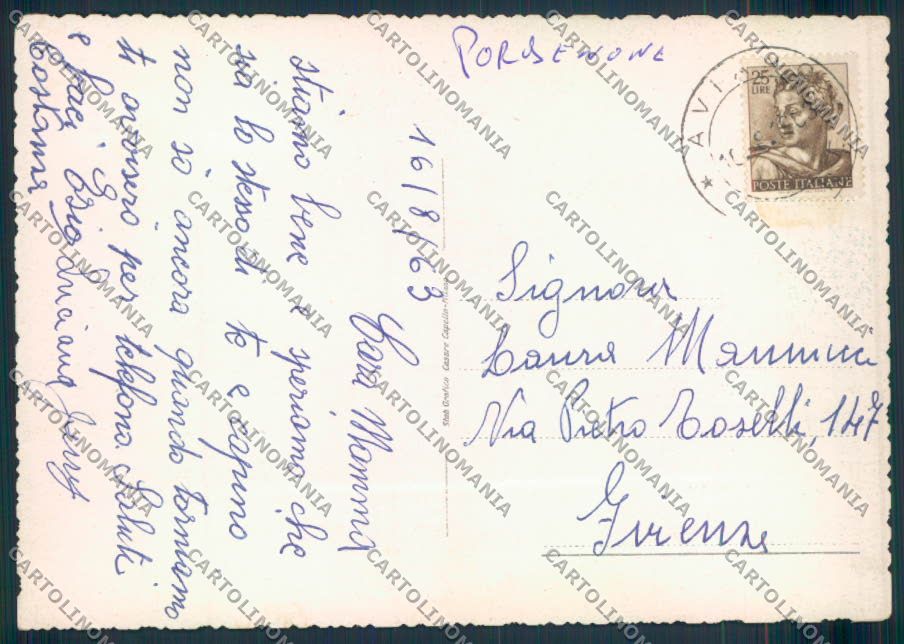 PORDENONE
AVI
25
LIRE
POSTE ITALIANE
16/8/63
Cara Mamma
stiamo bene e speriamo che
sia lo stesso di te e
non sò ancora quando torniamo
ti avviserò per telefono Saluti
e baci Ezio Luciana
Signora
Laura
Via Pietro Toselli, 147
Firenze
Stab Grafico Cesare Capello
CARTOLINOMANIA